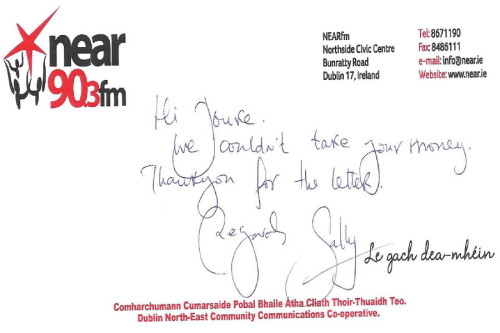 near
90.3fm
NEARfm
Northside Civic Centre
Bunratty Road
Dublin 17, Ireland
Tel: 8671190
Fax: 8486111
e-mail: info@near.ie
Website: www.near.ie
Hi Jouke.
We couldn't take your money.
Thankyou for the letter.
Regards
Sally
Le gach dea-mhéin
Comharchumann Cumarsaide Pobal Bhaile Átha Cliath Thoir-Thuaidh Teo.
Dublin North-East Community Communications Co-operative.